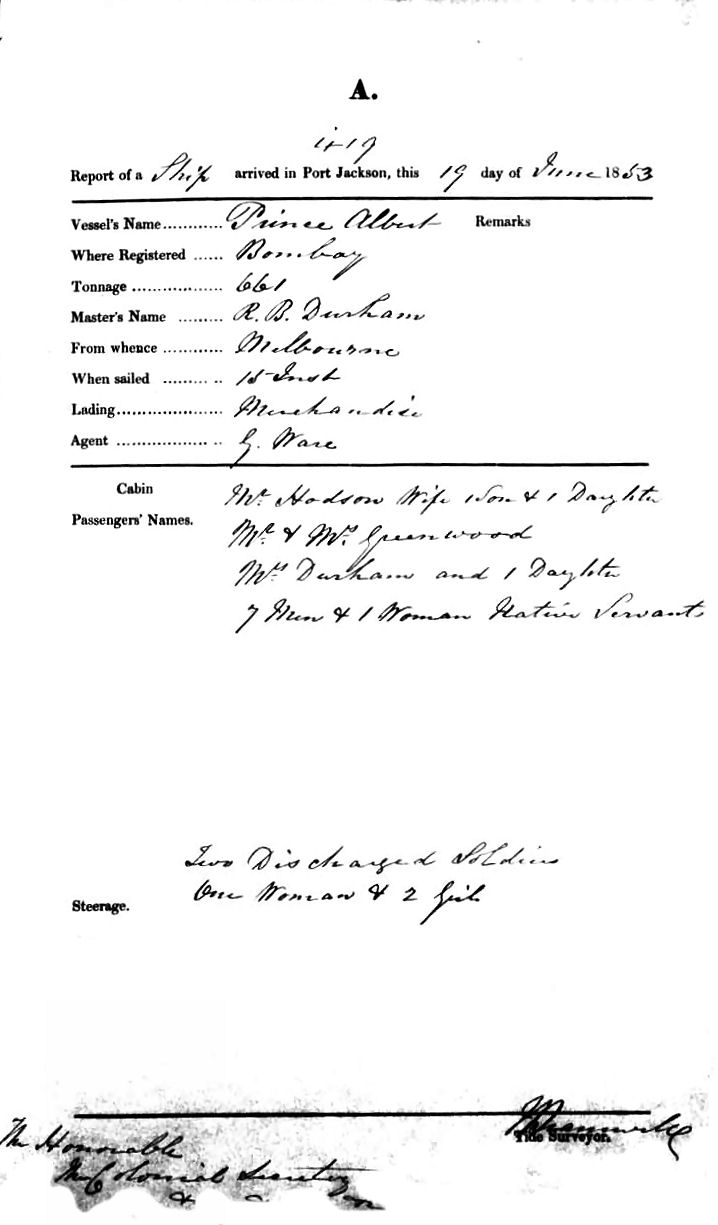 A.
Report of a Ship arrived in Port Jackson, this 19 day of June 1853
Vessel's Name............ Prince Albert Remarks
Where Registered ...... Bombay
Tonnage .................. 661
Master's Name ......... R. B. Durham
From whence ............ Melbourne
When sailed ......... .. 15 Inst
Lading..................... Merchandise
Agent .................. .. G. Ware
Cabin
Passengers' Names.
Mr. Hodson Wife 1 Son & 1 Daughter
Mr. & Mrs. Greenwood
Mrs Durham and 1 Daughter
7 Men & 1 Woman Native Servants
Two Discharged Soldiers
One Woman & 2 Girls
Steerage.
Tide Surveyor.
The Honorable
The Colonial Secretary